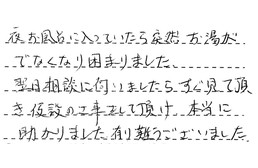 夜お風呂に入っていたら突然お湯が
でなくなり困まりました
翌日相談に伺いましたらすぐ見て頂
き仮設の工事をして頂け 本当に
助かりました 有難うございました